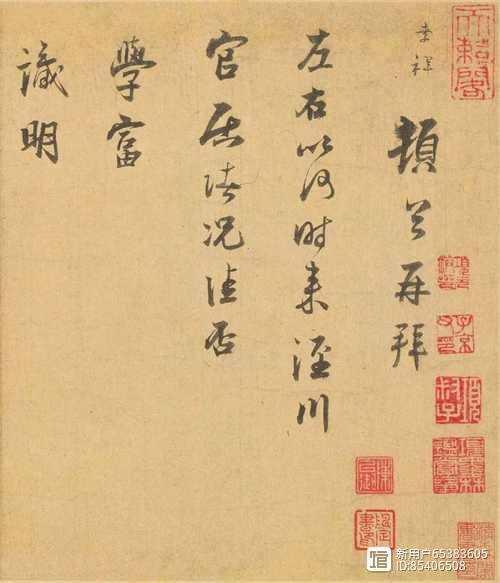 天籟閣
孝祥
頓首再拜
左右以何時來涇川
官居情況佳否
學富
識明
項叔子
新用户65383605
ID:85406508